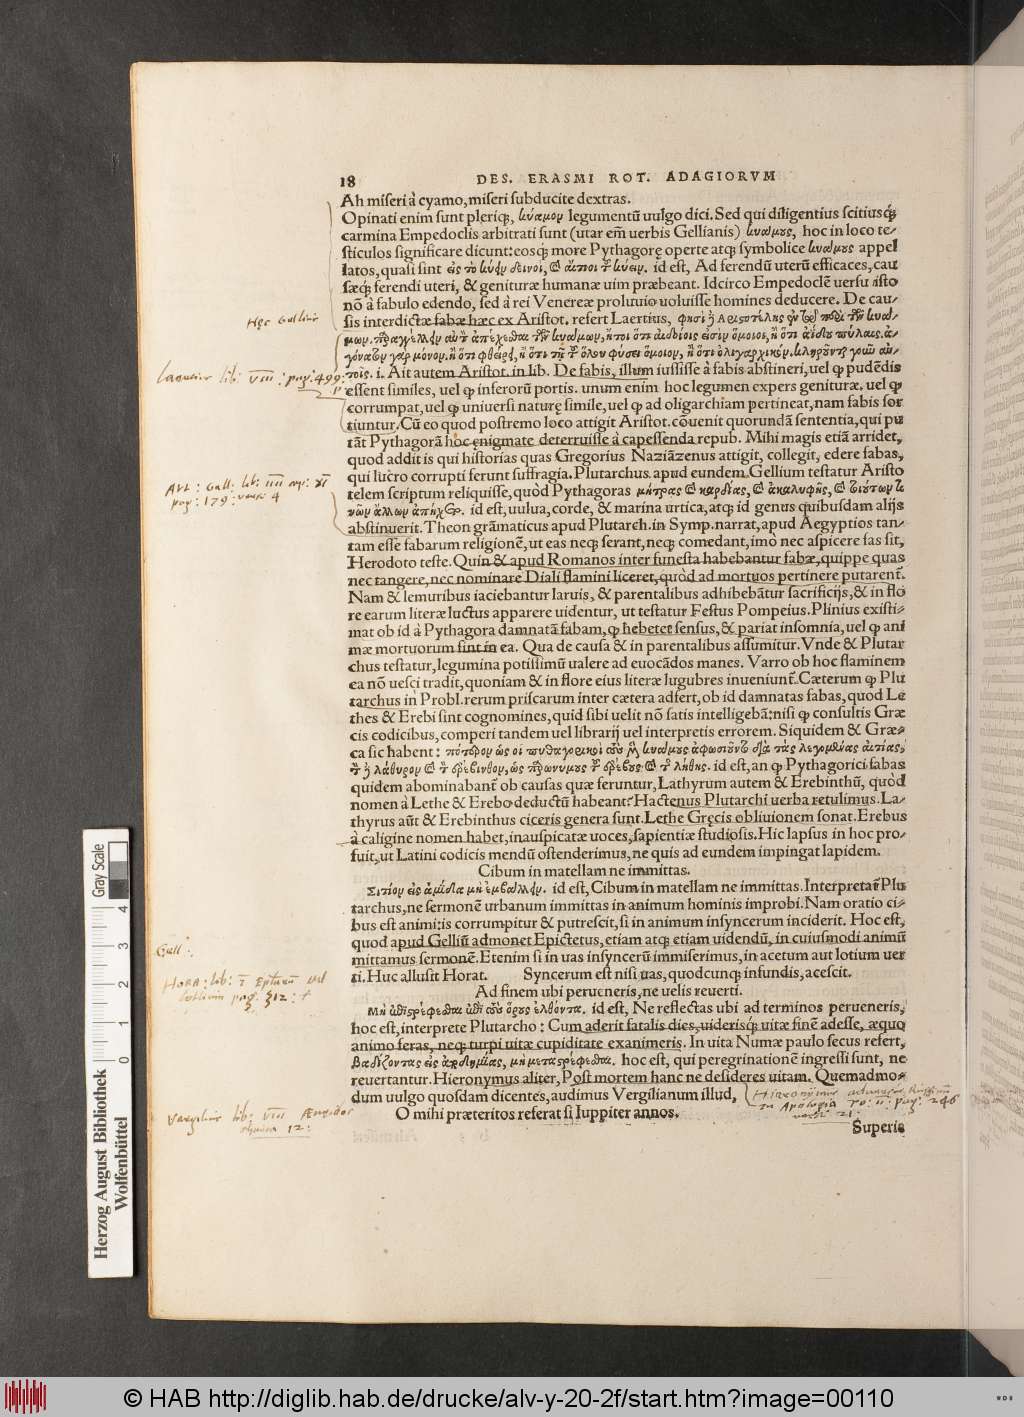 18 DES. ERASMI ROT. ADAGIORVM
Ah miseri à cyamo, miseri subducite dextras.
Opinati enim sunt pleriq;, κύαμον legumentū uulgo dici. Sed qui diligentius scitiusq́;
carmina Empedoclis arbitrati sunt (utar em̄ uerbis Gellianis) κυάμους, hoc in loco te-
sticulos significare dicunt: eosq́; more Pythagorę operte atq; symbolice κυάμους appel
latos, quasi sint εἰς τὸ κύειν δεινοὶ, καὶ αἴτιοι τοῦ κύειν. id est, Ad ferendū uterū efficaces, cau
sæq́; ferendi uteri, & genituræ humanæ uim præbeant. Idcirco Empedoclē uersu isto
nō à fabulo edendo, sed à rei Venereæ proluuio uoluisse homines deducere. De cau-
sis interdictæ fabæ hæc ex Aristot. refert Laertius, φησὶ δ' Ἀριστοτέλης ἐν τῷ περὶ τῶν κυά-
μων, παραγγέλλειν αὐτὸν ἀπέχεσθαι τῶν κυάμων, ἤτοι ὅτι αἰδοίοις εἰσὶν ὅμοιοι, ἢ ὅτι ἀΐδου πύλαις. ἀ-
γόνατον γὰρ μόνον. ἢ ὅτι φθείρει, ἢ ὅτι τῇ τοῦ ὅλου φύσει ὅμοιον, ἢ ὅτι ὀλιγαρχικόν. κληροῦνται γοῦν αὐ-
τοῖς. i. Ait autem Aristot. in lib. De fabis, illum iussisse à fabis abstineri, uel ꝙ pudēdis
essent similes, uel ꝙ inferorū portis. unum enim hoc legumen expers genituræ. uel ꝙ
corrumpat, uel ꝙ uniuersi naturę simile, uel ꝙ ad oligarchiam pertineat, nam fabis sor
tiuntur. Cū eo quod postremo loco attigit Aristot. cōuenit quorundā sententia, qui pu
tāt Pythagorā hoc ęnigmate deterruisse à capessenda repub. Mihi magis etiā arridet,
quod addit is qui historias quas Gregorius Naziāzenus attigit, collegit, edere fabas,
qui lucro corrupti ferunt suffragia. Plutarchus apud eundem Gellium testatur Aristo
telem scriptum reliquisse, quòd Pythagoras μήτρας καὶ καρδίας, καὶ ἀκαλυφῆς, καὶ τοιούτων τι
νῶν ἄλλων ἀπήχετο. id est, uulua, corde, & marina urtica, atq; id genus quibusdam alijs
abstinuerit. Theon grāmaticus apud Plutarch. in Symp. narrat, apud Aegyptios tan-
tam esse fabarum religionē, ut eas neq; serant, neq; comedant, imò nec aspicere fas sit,
Herodoto teste. Quin & apud Romanos inter funesta habebantur fabæ, quippe quas
nec tangere, nec nominare Diali flamini liceret, quòd ad mortuos pertinere putarent̄.
Nam & lemuribus iaciebantur laruis, & parentalibus adhibebātur sacrificijs, & in flo
re earum literæ luctus apparere uidentur, ut testatur Festus Pompeius. Plinius existi-
mat ob id à Pythagora damnatā fabam, ꝙ hebetet sensus, & pariat insomnia, uel ꝙ ani
mæ mortuorum sint in ea. Qua de causa & in parentalibus assumitur. Vnde & Plutar
chus testatur, legumina potissimū ualere ad euocādos manes. Varro ob hoc flaminem
ea nō uesci tradit, quoniam & in flore eius literæ lugubres inueniunt̄. Cæterum ꝙ Plu
tarchus in Probl. rerum priscarum inter cætera adfert, ob id damnatas fabas, quod Le
thes & Erebi sint cognomines, quid sibi uelit nō satis intelligebā: nisi ꝙ consultis Græ
cis codicibus, comperi tandem uel librarij uel interpretis errorem. Siquidem & Græ-
ca sic habent: πότερον ὡς οἱ πυθαγορικοὶ τοὺς μὲν κυάμους ἀφωσιοῦντο διὰ τὰς λεγομένας αἰτίας,
τὸν δὲ λάθυρον καὶ τὸν ἐρέβινθον, ὡς παρωνύμους τοῦ ἐρέβους καὶ τῆς λήθης. id est, an ꝙ Pythagorici fabas
quidem abominabant̄ ob causas quæ feruntur, Lathyrum autem & Erebinthū, quòd
nomen à Lethe & Erebo deductū habeant? Hactenus Plutarchi uerba retulimus. La-
thyrus aūt & Erebinthus ciceris genera sunt. Lethe Gręcis obliuionem sonat. Erebus
à caligine nomen habet, inauspicatæ uoces, sapientiæ studiosis. Hic lapsus in hoc pro-
fuit, ut Latini codicis mendū ostenderimus, ne quis ad eundem impingat lapidem.
Cibum in matellam ne immittas.
Σιτίον εἰς ἀμίδα μὴ ἐμβάλλειν. id est, Cibum in matellam ne immittas. Interpretat̄ Plu
tarchus, ne sermonē urbanum immittas in animum hominis improbi. Nam oratio ci-
bus est animi: is corrumpitur & putrescit, si in animum insyncerum inciderit. Hoc est,
quod apud Gelliū admonet Epictetus, etiam atq; etiam uidendū, in cuiusmodi animū
mittamus sermonē. Etenim si in uas insyncerū immiserimus, in acetum aut lotium uer
ti. Huc allusit Horat. Syncerum est nisi uas, quodcunq; infundis, acescit.
Ad finem ubi perueneris, ne uelis reuerti.
Μὴ ἐπιστρέφεσθαι ἐπὶ τοὺς ὅρους ἐλθόντα. id est, Ne reflectas ubi ad terminos perueneris,
hoc est, interprete Plutarcho: Cum aderit fatalis dies, uiderisq́; uitæ finē adesse, æquo
animo feras, neq; turpi uitæ cupiditate exanimeris. In uita Numæ paulo secus refert,
Βαδίζοντας εἰς ἀποδημίας, μὴ μεταστρέφεσθαι. hoc est, qui peregrinationē ingressi sunt, ne
reuertantur. Hieronymus aliter, Post mortem hanc ne desideres uitam. Quemadmo-
dum uulgo quosdam dicentes, audimus Vergilianum illud,
O mihi præteritos referat si Iuppiter annos.
Superis
Hęc Gellius
Laertius lib: VIII: pag: 499:
Aul: Gell: lib: IIII cap: XI
pag: 179: versu 4
Gell:
Hora: lib: I Epłarū ad
Lollium pag: 312:
Vergilius lib: VIII Æneidos
12:
Hieronymus aduersus Ruffinū
in Apologia To: II: pag: 246
versu 21:
Gray Scale
0 1 2 3 4
Herzog August Bibliothek
Wolfenbüttel
© HAB http://diglib.hab.de/drucke/alv-y-20-2f/start.htm?image=00110